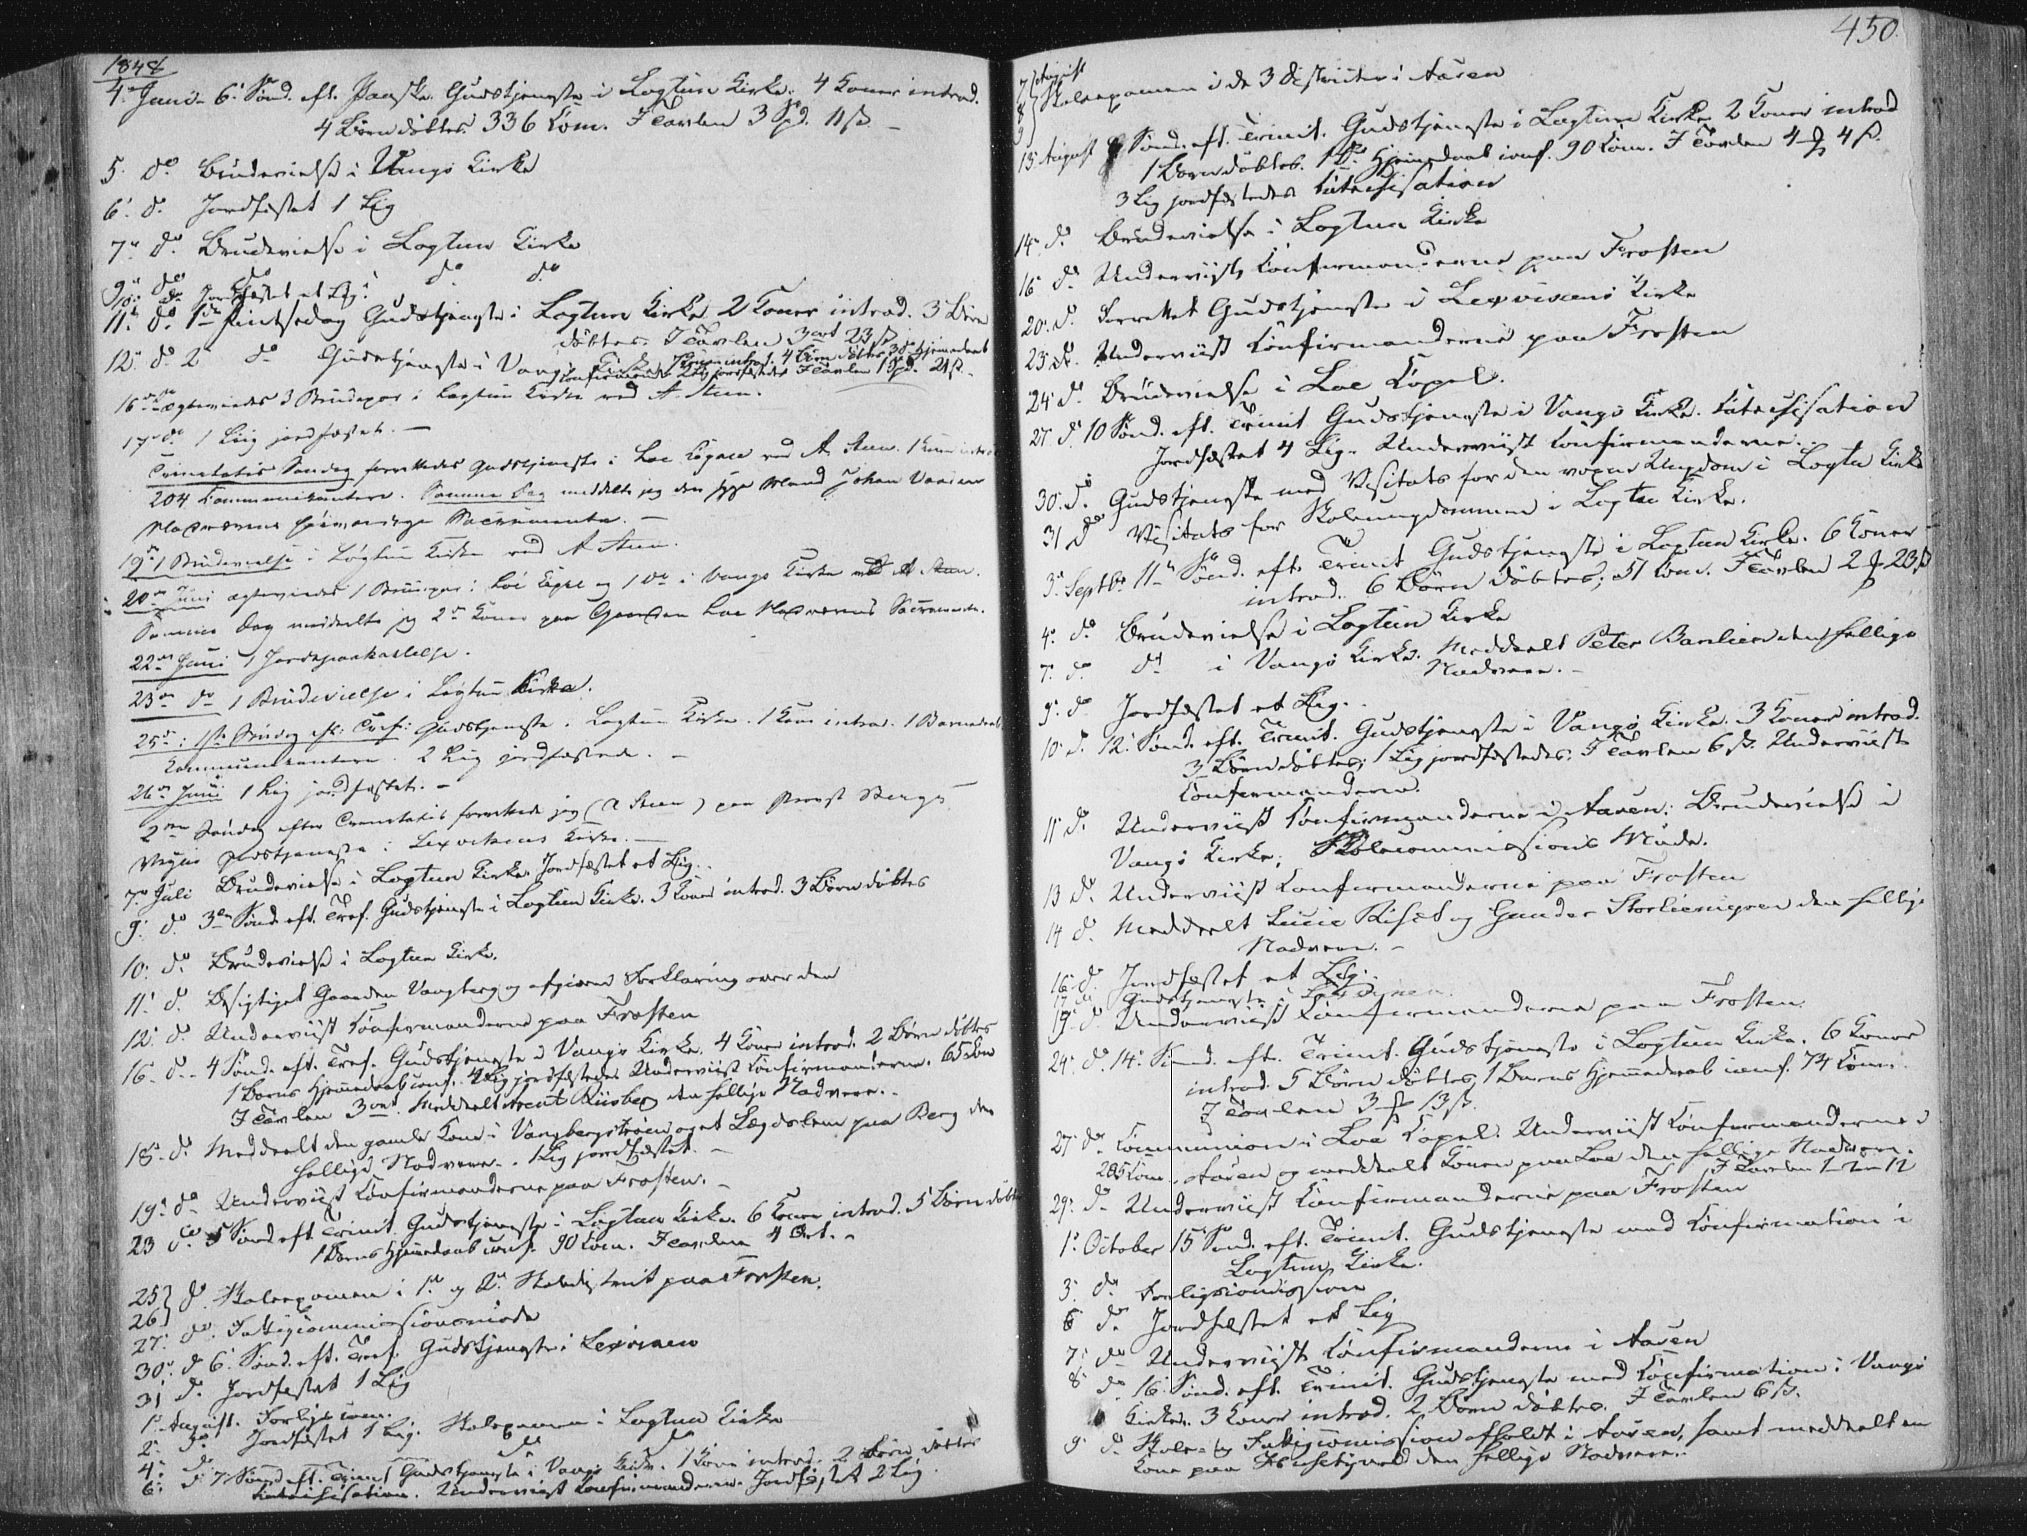 1848
4. Juni 6. Sønd. eft. Paaske Gudstjeneste i Logtun Kirke. 4 Koner introd.
4 Børn døbtes. 336 Kom. I Tavlen 3 Spd. 11 ß.
5. do Brudevielse i Vangs Kirke
6. d. Jordfæstet 1 Lig
7. d. Brudevielse i Logtun Kirke
9. do do do do
10. do Jordfæstet et Lig.
11. d. 1ste Pintsedag Gudstjeneste i Logtun Kirke. 2 Koner introd. 3 Børn
døbtes. I Tavlen 3 ort 23 ß
12. do 2. do Gudstjeneste i Vangs Kirke introd. 4 Børn døbtes 3 do hjemedaab
confirmerede. Lig jordfæstedes. I Tavlen 1 Spd. 21 ß.
16. do ægteviedes 3 Brudepar i Logtun Kirke ved A Steen.
17. do 1 Liig jordfæstet.
Trinitatis Søndag forrettedes Gudstjeneste i Loe Capel ved A. Steen. 1 Kone introd.
204 Communikantere. Samme Dag meddelte jeg den syge Mand Johan
Sacramente.
19. 1 Brudevielse i Logtun Kirke ved A Steen.
20. Juni ægteviedes 1 Brudepar i Loe Capel og 1 do i Vangs Kirke ved A Steen.
Samme Dag meddelte jeg 2 Koner paa Gaarden Loe Sacramente.
22. Juni 1 Jordpaakastelse.
23. do 1 Brudevielse i Logtun Kirke.
25. 1ste Søndag eft. Tref. Gudstjeneste. Logtun Kirke. 1 Kone introd. 1 Barnedaab
Kommunikantere. 2 Lig jordfæstede.
26. Juni 1 Lig jordfæstet.
2den Søndag efter Trinitatis forrettede jeg (A Steen) paa Provst
Vegne Gudstjeneste i Lexvikens Kirke.
7. Juli Brudevielse i Logtun Kirke. Jordfæstet et Lig.
9. d. 3die Sønd. eft. Tref. Gudstjeneste i Logtun Kirke. 3 Koner introd. 3 Børn døbtes
10. d. Brudevielse i Logtun Kirke.
11. d. Besigtiget Gaarden Vangberg og afgiven Forklaring over den
12. d. Underviist Confirmanderne paa Frosten
16. d. 4 Sønd. eft. Tref. Gudstjeneste i Vangs Kirke. 4 Koner introd. 2 Børn døbtes
1 Barns Hjemmedaab conf. 4 Lig jordfæstedes. Underviist Confirmanderne. 65 Kom
I Tavlen 3 ort. Meddeelt den hellige Nadvere.
18. d. Meddeelt den gamle Kone i og et Lægdslem paa Berg den
hellige Nadvere. 1 Lig jordfæstet.
19. do Underviist Confirmanderne paa Frosten.
23 do 5 Sønd. eft. Trinit. Gudstjeneste i Logtun Kirke. 6 Koner introd. 5 Børn døbte
1 Barns Hjemmedaab conf. 90 Kom. I Tavlen 4 Ort.
25
26 } d. Skoleexamen i 1. og 2. Skoledistrict paa Frosten.
27. do Fattigcommissionsmøde
30. d 6. Sønd. eft. Tref. Gudstjeneste i Lexvigen
31 d. Jordfæstet 1 Lig
1. August. Forligscom.
2. do Jordfæstet 1 Lig. Skoleexamen i Logtun Kirke
4. d. do do
6. d. 7 Sønd. eft. Trinit Gudstjeneste i Vangs Kirke. 1 Kone introd. 2 Børn døbtes
Katechisation. Underviist Confirmanderne. Jordfæstet 2 Lig.
450.
7 August
8 } Skoleexamen i de 3 districter i Aasen
9
13. August 8 Sønd. eft. Trinit. Gudstjeneste i Logtun Kirke 2 Koner introd
1 Barn døbtes. 1 do Hjemmedaab conf. 90 Kom. I Tavlen 4 ß.
3 Lig jordfæstedes Katechisation
14. d. Brudevielse i Logtun Kirke
16. d. Underviist Confirmanderne paa Frosten
20. d. Forrettet Gudstjeneste i Lexvigens Kirke
23. d. Underviist Confirmanderne paa Frosten
24. d. Brudevielse i Loe Capel.
27. d. 10 Sønd. eft. Trinit Gudstjeneste i Vangs Kirke. Katechisation
Jordfæstet 4 Lig. Underviist Confirmanderne.
30. d. Gudstjeneste med Visitats for den voxne Ungdom i Logtu Kirke
31 do Visitats for Skoleungdommen i Logtu Kirke.
3. Septbr 11te Sønd. eft. Trinit Gudstjeneste i Logtun Kirke. 6 Koner
introd. 6 Børn døbtes; 51 Kom. I Tavlen 2 23 ß
4. d. Brudevielse i Logtun Kirke
7. d. do i Vangs Kirke. Meddeelt Peter Barlien den hellige
Nadvere.
9. do Jordfæstet et Lig.
10. d. 12. Sønd. eft. Trinit. Gudstjeneste i Vangs Kirke. 3 Koner introd.
3 Børn døbtes; 1 Lig jordfæstedes; I Tavlen 6 ß. Underviist
Confirmanderne.
11. d. Underviist Confirmanderne i Aasen; Brudevielse i
Vangs Kirke; Skolecommissions Møde.
13 do Underviist Confirmanderne paa Frosten
14 d. Meddeelt og den hellige
Nadvere.
16. d. Jordfæstet et Lig.
17. do Gudstjeneste i Lexvigen.
19. d. Underviist Confirmanderne paa Frosten.
24. d. 14. Sønd. eft. Trinit. Gudstjeneste i Logtun Kirke. 6 Koner
introd. 5 Børn døbtes, 1 Barns Hjemmedaab conf. 74 Kom.
I Tavlen 3 13 ß.
27. do Communion i Loe Capel. Underviist Confirmanderne i
205 Kom. Aasen og meddeelt Konen paa Loe den hellige Nadvere.
I Tavlen 1 2 12
29. d. Underviist Confirmanderne paa Frosten
1. October 15 Sønd. eft. Trinit. Gudstjeneste med Confirmation i
Logtun Kirke.
3. do Forligscommission
6 d. Jordfæstet et Lig
7. do Underviist Confirmanderne i Aasen
8. do 16. Sønd. eft. Trinit. Gudstjeneste med Confirmation i Vangs
Kirke. 3 Koner introd. 2 Børn døbtes. I Tavlen 6 ß.
9. d. Skole- og Fattigcommission afholdt i Aasen, samt meddeelt en
Kone paa den hellige Nadvere.